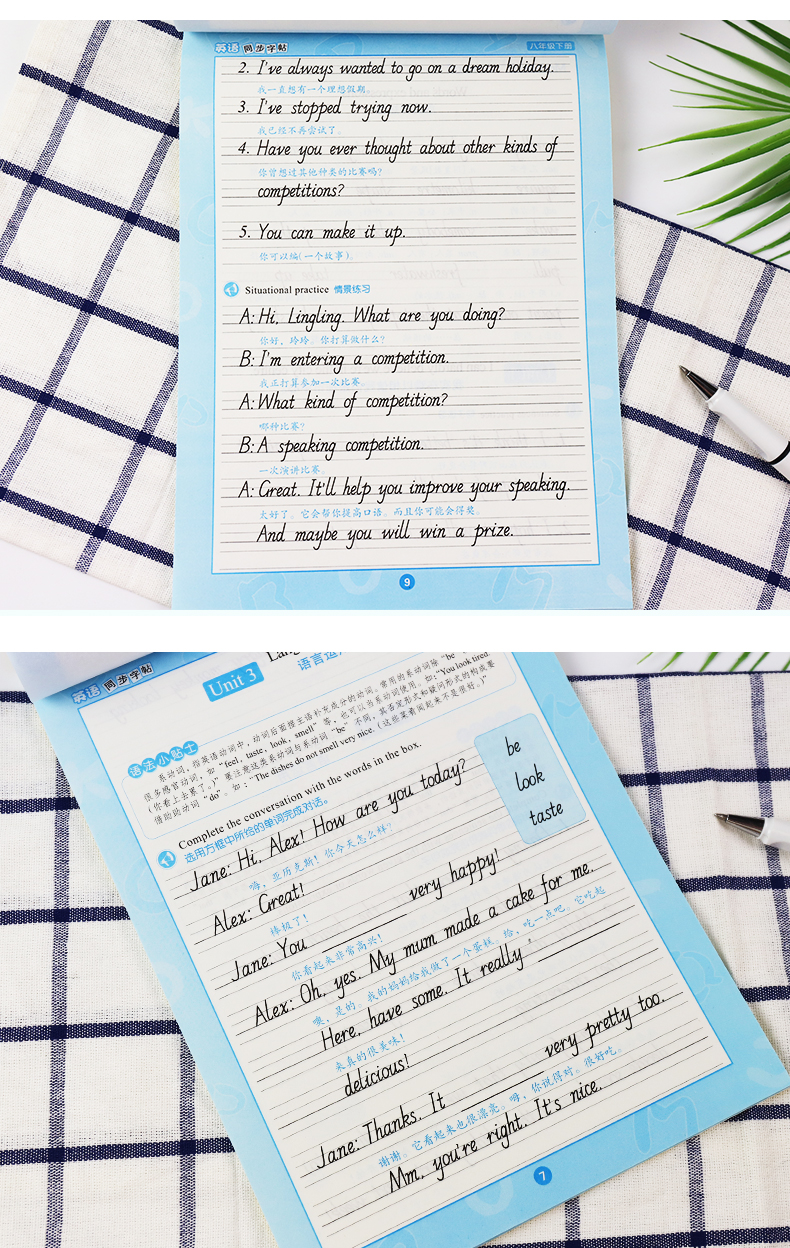 英语 同步字帖 八年级下册
2. I've always wanted to go on a dream holiday.
我一直想有一个理想假期。
3. I've stopped trying now.
我已经不再尝试了。
4. Have you ever thought about other kinds of
你曾想过其他种类的比赛吗?
competitions?
5. You can make it up.
你可以编(一个故事)。
Situational practice 情景练习
A: Hi, Lingling. What are you doing?
你好、玲玲。你打算做什么?
B: I'm entering a competition.
我正打算参加一次比赛。
A: What kind of competition?
哪种比赛?
B: A speaking competition.
一次演讲比赛。
A: Great. It'll help you improve your speaking.
太好了。它会帮你提高口语。而且你可能会得奖。
And maybe you will win a prize.
9
英语 同步字帖
Unit 3
语法小贴士
系动词,指英语动词中,动词后面接主语补充成分的动词。常用的系动词除“be
很多感官动词,如“feel, taste, look, smell”等,也可以当系动词使用。如:“You look tired.
(你看上去累了。)”要注意这类系动词与系动词“be”不同,其否定形式和疑问形式的构成要
借助助动词“do”。如:“The dishes do not smell very nice.(这些菜肴闻起来不是很好。)”
Complete the conversation with the words in the box.
选用方框中所给的单词完成对话。
be
look
taste
Jane: Hi, Alex! How are you today?
嗨,亚历克斯!你今天怎么样?
Alex: Great!
棒极了!
Jane: You ________ very happy!
你看起来非常高兴!
Alex: Oh, yes. My mum made a cake for me.
噢,是的。我的妈妈给我做了一个蛋糕。给,吃一点吧。它吃起
Here, have some. It really ________
来真的很美味!
delicious!
Jane: Thanks. It ________ very pretty too.
谢谢。它看起来也很漂亮。嗨,你说得对。很好吃。
Mm, you're right. It's nice.
7